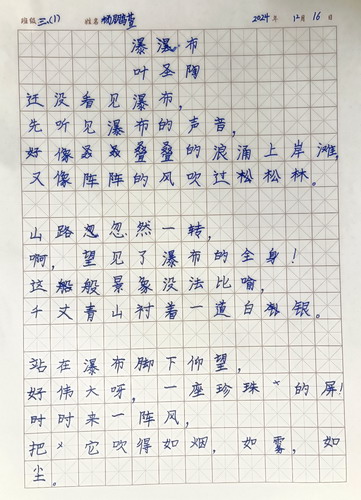 班级 三.(1) 姓名 2024年 12月 16日
瀑瀑布
叶圣陶
还没看见瀑布,
先听见瀑布的声音,
好像叠叠的浪涌上岸滩,
又像阵阵的风吹过松松林。
山路忽忽然一转,
啊, 望见了瀑布的全身!
这般般景象没法比喻,
千丈青山衬着一道白银。
站在瀑布脚下仰望,
好伟大呀, 一座珍珠的屏!
时时来一阵风,
把它吹得如烟, 如雾, 如
尘。